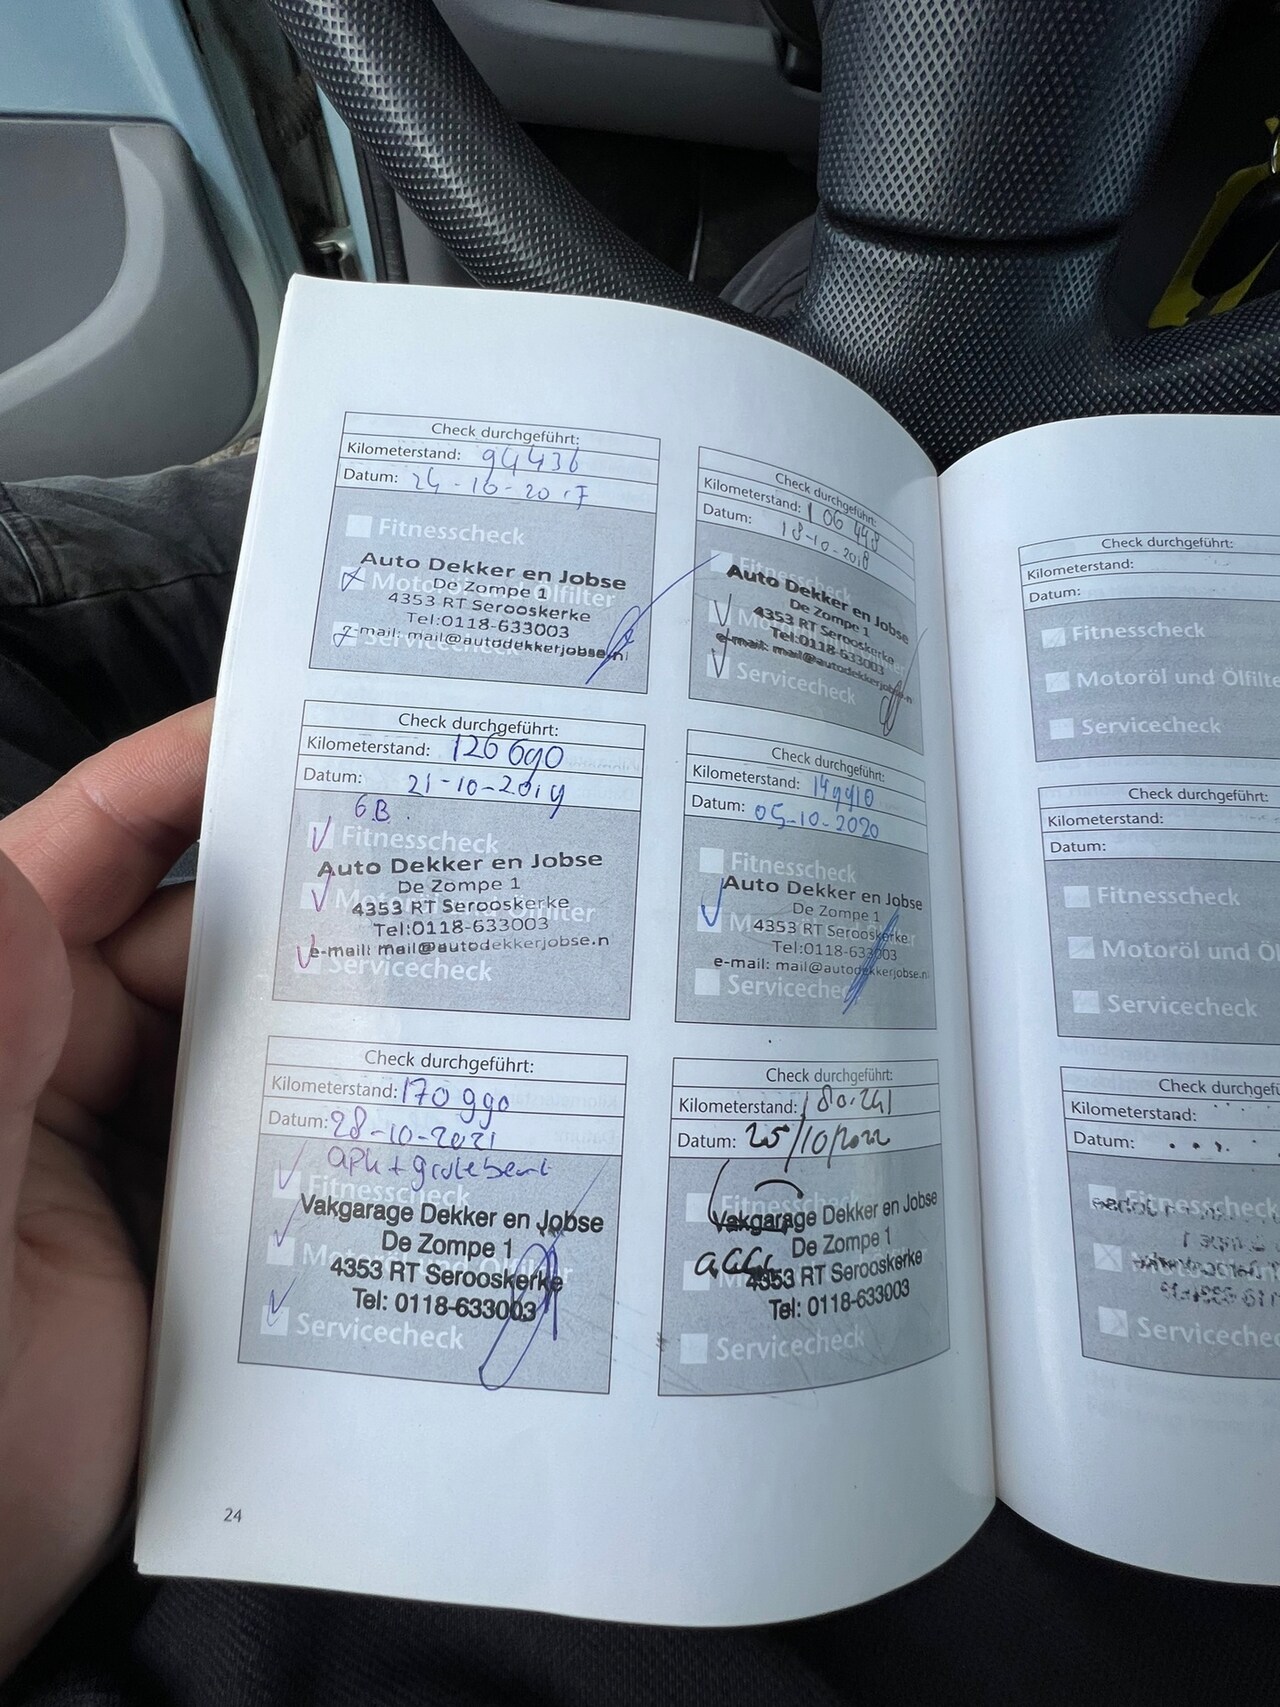 Check durchgeführt:
Kilometerstand: 94436
Datum: 24-10-2017
Fitnesscheck
Auto Dekker en Jobse
Motoröl und Ölfilter
De Zompe 1
4353 RT Serooskerke
Tel:0118-633003
e-mail: mail@autodekkerjobse.n
Servicecheck
Check durchgeführt:
Kilometerstand: 106 448
Datum: 18-10-2018
Fitnesscheck
Auto Dekker en Jobse
De Zompe 1
4353 RT Serooskerke
Tel:0118-633003
e-mail: mail@autodekkerjobse.n
Servicecheck
Check durchgeführt:
Kilometerstand: 126690
Datum: 21-10-2019
GB
Fitnesscheck
Auto Dekker en Jobse
De Zompe 1
4353 RT Serooskerke
Tel:0118-633003
e-mail: mail@autodekkerjobse.n
Servicecheck
Check durchgeführt:
Kilometerstand: 149910
Datum: 05-10-2020
Fitnesscheck
Auto Dekker en Jobse
De Zompe 1
4353 RT Serooskerke
Tel:0118-633003
e-mail: mail@autodekkerjobse.n
Servicecheck
Check durchgeführt:
Kilometerstand: 170 990
Datum: 28-10-2021
apk + grote beurt
Fitnesscheck
Vakgarage Dekker en Jobse
De Zompe 1
4353 RT Serooskerke
Tel: 0118-633003
Servicecheck
Check durchgeführt:
Kilometerstand: 180.241
Datum: 25/10/2022
Fitnesscheck
Vakgarage Dekker en Jobse
De Zompe 1
4353 RT Serooskerke
Tel: 0118-633003
Servicecheck
24
Check durchgeführt:
Kilometerstand:
Datum:
Fitnesscheck
Motoröl und Ölfilte
Servicecheck
Check durchgeführt:
Kilometerstand:
Datum:
Fitnesscheck
Motoröl und Öl
Servicecheck
Check durchgefü
Kilometerstand:
Datum:
Fitnesscheck
Servicechec